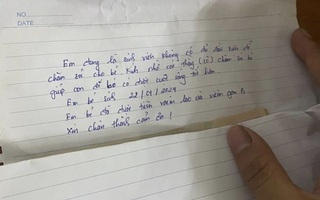 NO.
DATE
Em đang là sinh viên không có đủ điều kiện để
chăm sóc cho bé. Kính nhờ cơ thầy (cô) chăm sóc bé
giúp con để bé có được cuộc sống tốt hơn.
Em bé sinh 22/01/2024
Em bé đã được tiêm vacxin lao và viêm gan B.
Xin chân thành cảm ơn!